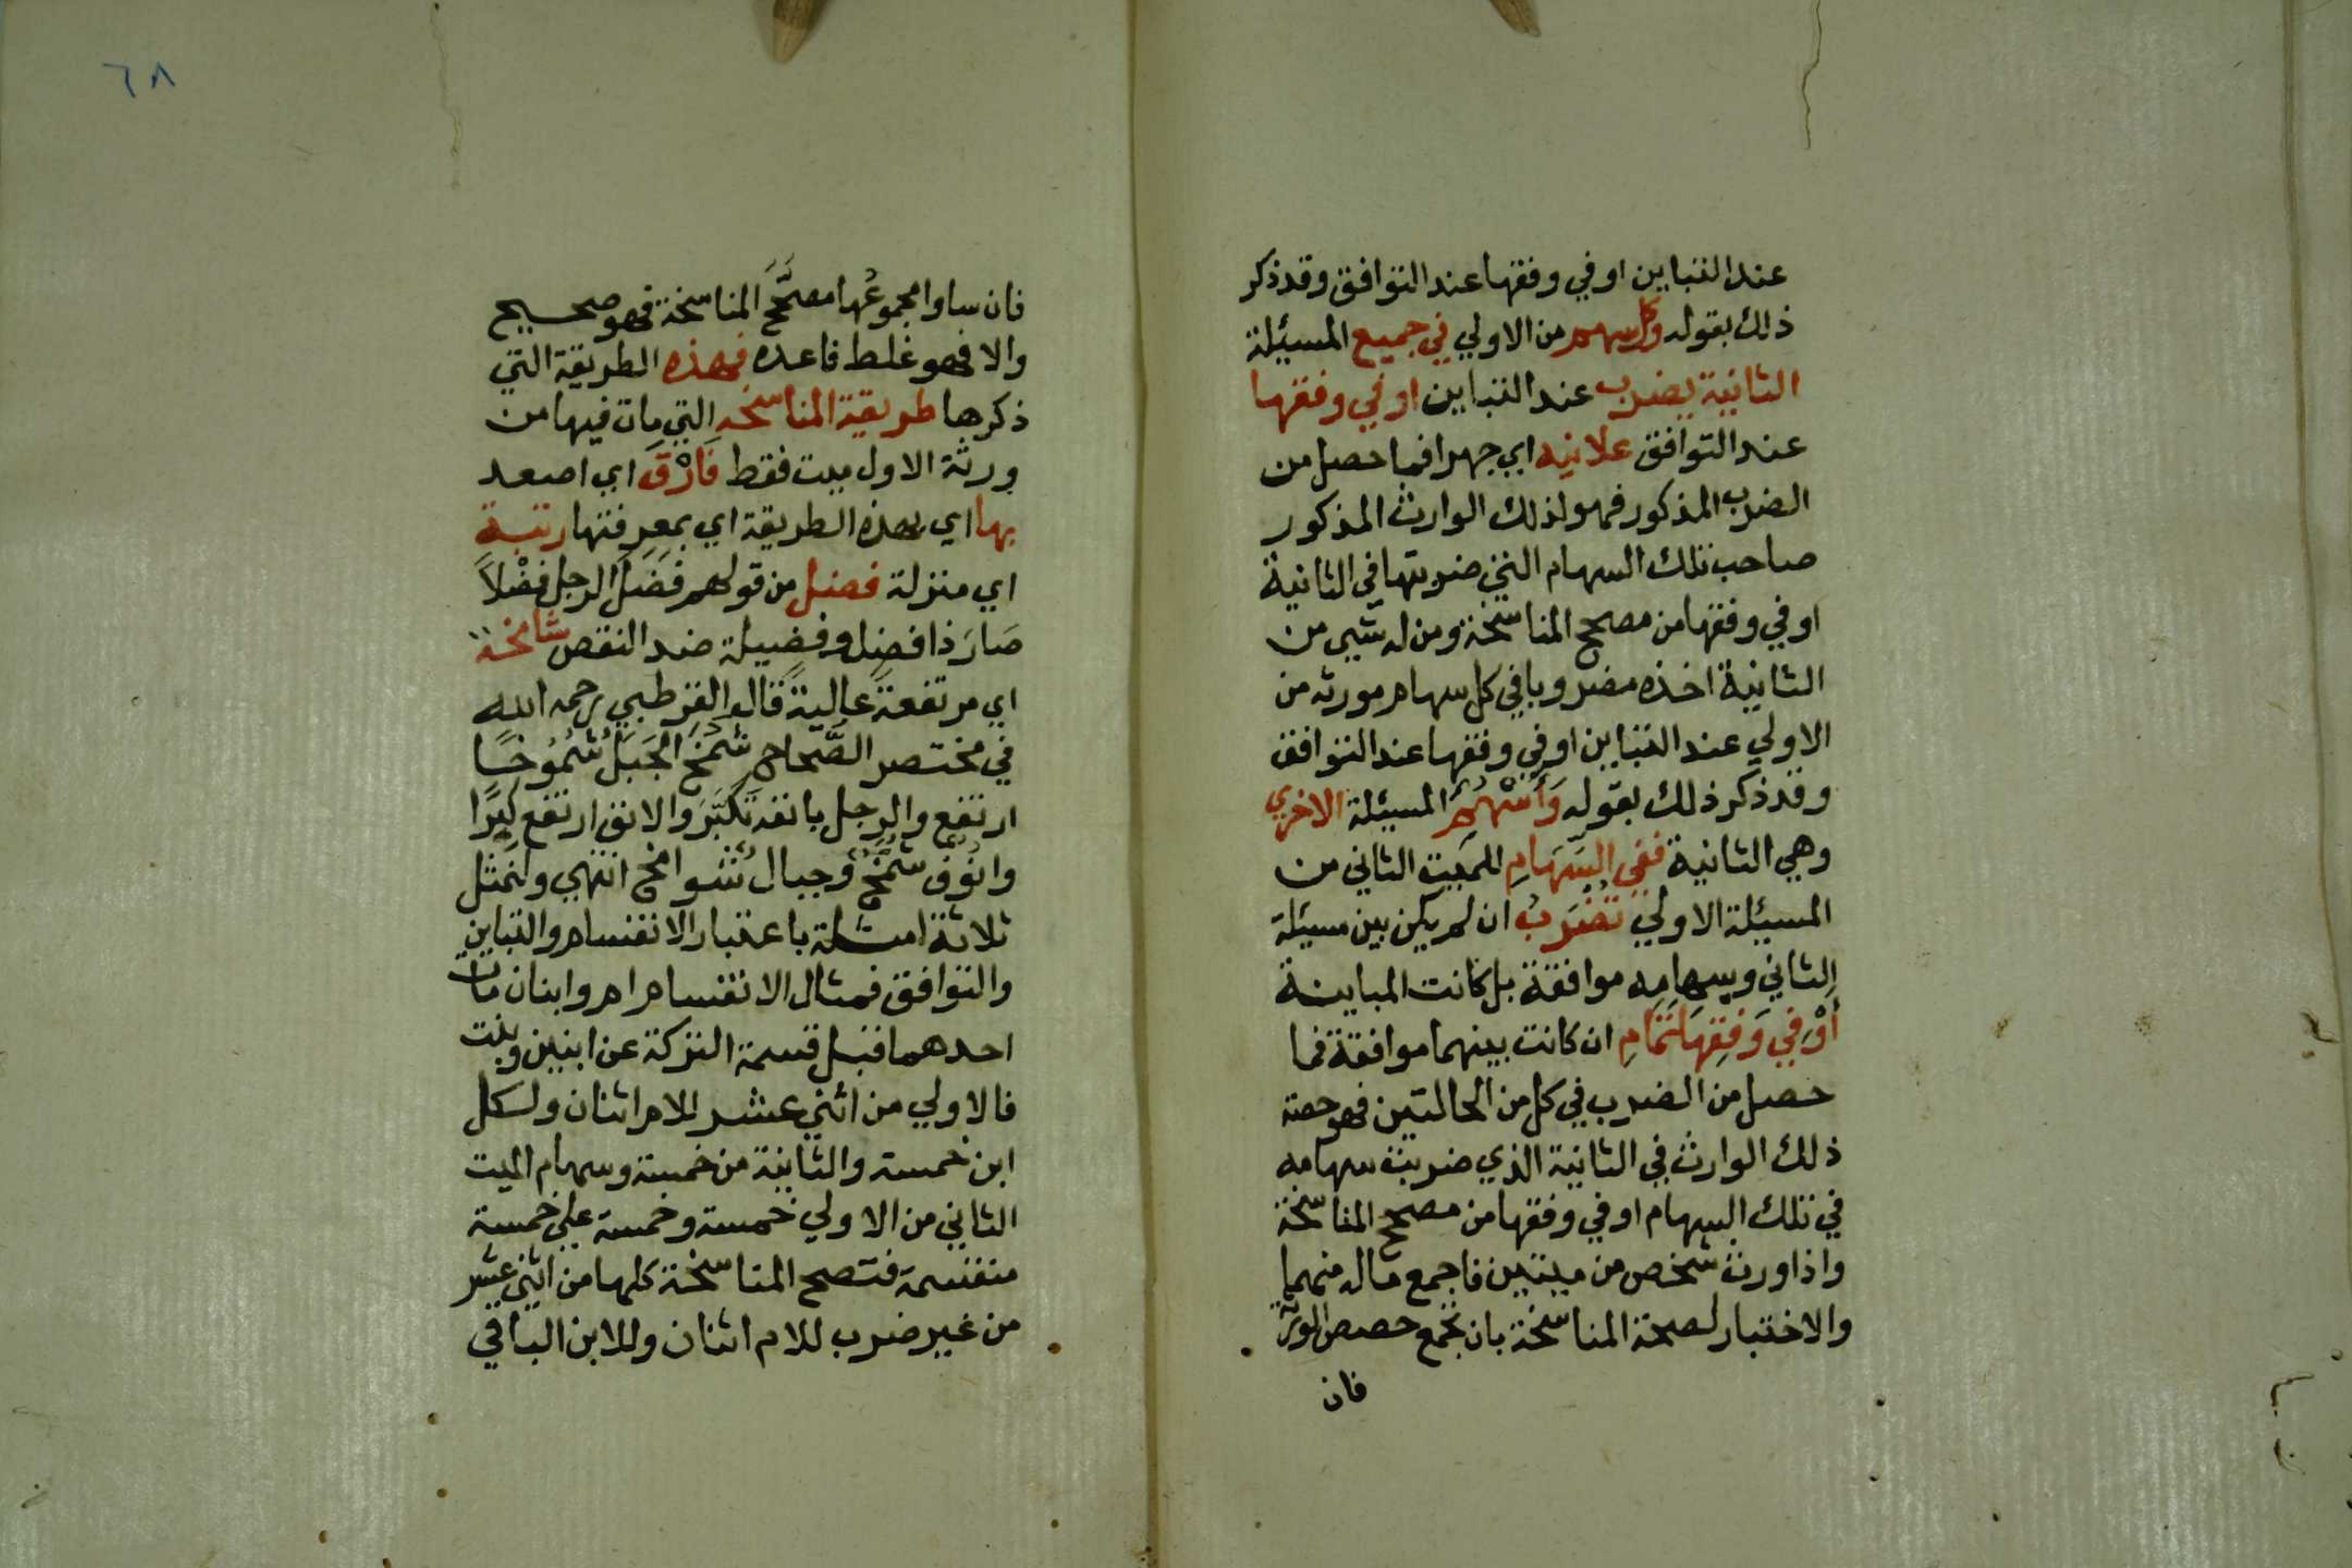 عند التباين او في وفقها عند التوافق وقد ذكر
ذلك بقوله وكل سهم من الاولي في جميع المسئلة
الثانية يضرب عند التباين او في وفقها
عند التوافق علانيه اي جهرا فما حصل من
الضرب المذكور فهو لذلك الوارث المذكور
صاحب تلك السهام التي ضربتها في الثانية
او في وفقها من مصحح المناسخة ومن له شيي من
الثانية اخذه مضروبا في كل سهام مورثه من
الاولي عند التباين او في وفقها عند التوافق
وقد ذكر ذلك بقوله وَأَسْهُمُ المسئلة الاخري
وهي الثانية ففي السِّهَامِ للميت الثاني من
المسئلة الاولي تُضْرَبُ ان لم يكن بين مسئلة
الثاني وسهامه موافقة بل كانت المباينة
أَوْ فِي وَفقِهَا تَمَامِ ان كانت بينهما موافقة فما
حصل من الضرب في كل من الحالتين فهو حصة
ذلك الوارث في الثانية الذي ضربت سهامه
في تلك السهام او في وفقها من مصحح المناسخة
واذا ورث شخص من ميتين فاجمع ماله منهما
والاختبار لصحة المناسخة بان تجمع حصص الورثة
فان
٦٨
فان ساوا مجموعُها مصحَّحَ المناسخة فهو صحيح
والا فهو غلط فاعده فهذه الطريقة التي
ذكرها طريقة المناسخه التي مات فيها من
ورثة الاول ميت فقط فَارْقَ اي اصعد
بها اي بهذه الطريقة اي بمعرفتها رتبة
اي منزلة فضل من قولهم فَضَلَ الرجل فضْلاً
صَارَ ذا فضل وفضيلة ضد النقص شامخة
اي مرتفعة عالية قال القرطبي رحمه الله
في مختصر الصَّحاح شَمَخَ الجَبَلُ شُمُوخًا
ارتفع والرجل بانفه تَكَبَّرَ والانف ارتفع كِبرًا
وانُوُفٌ شُمَّخٌ وجبال شوامخ انتهي ولنمثل
ثلاثة امثلة باعتبار الانقسام والتباين
والتوافق فمثال الانقسام ام وابنان مات
احدهما قبل قسمة التركة عن ابنين وبنت
فالاولي من اثني عشر للام اثنان ولكل
ابن خمسة والثانية من خمسة وسهام الميت
الثاني من الاولي خمسة وخمسة علي خمسة
منقسمة فتصح المناسخة كلها من اثني عشر
من غير ضرب للام اثنان وللابن الباقي